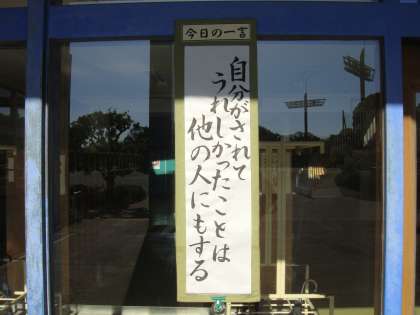 今日の一言
自分がされて
うれしかったことは
他の人にもする